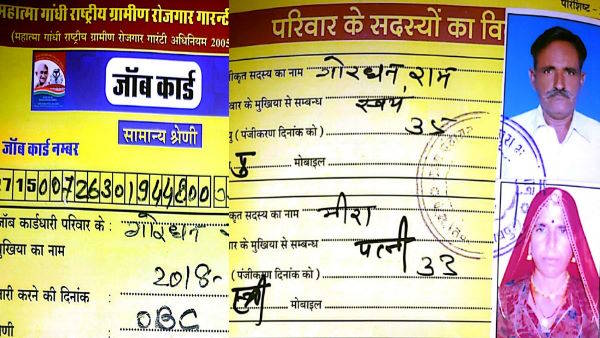 महात्मा गांधी राष्ट्रीय ग्रामीण रोजगार गारन्टी
(महात्मा गांधी राष्ट्रीय ग्रामीण रोजगार गारंटी अधिनियम 2005
जॉब कार्ड
सामान्य श्रेणी
जॉब कार्ड नम्बर
जॉब कार्डधारी परिवार के : गोरधन
मुखिया का नाम
2018-
जारी करने की दिनांक
श्रेणी OBC
परिशिष्ट -
परिवार के सदस्यों का वि
कृत सदस्य का नाम गोरधन राम
वार के मुखिया से सम्बन्ध स्वयं
(पंजीकरण दिनांक को) 35
पु मोबाइल
कृत सदस्य का नाम मीरा
र के मुखिया से सम्बन्ध पत्नी
(पंजीकरण दिनांक को) 33
स्त्री मोबाइल